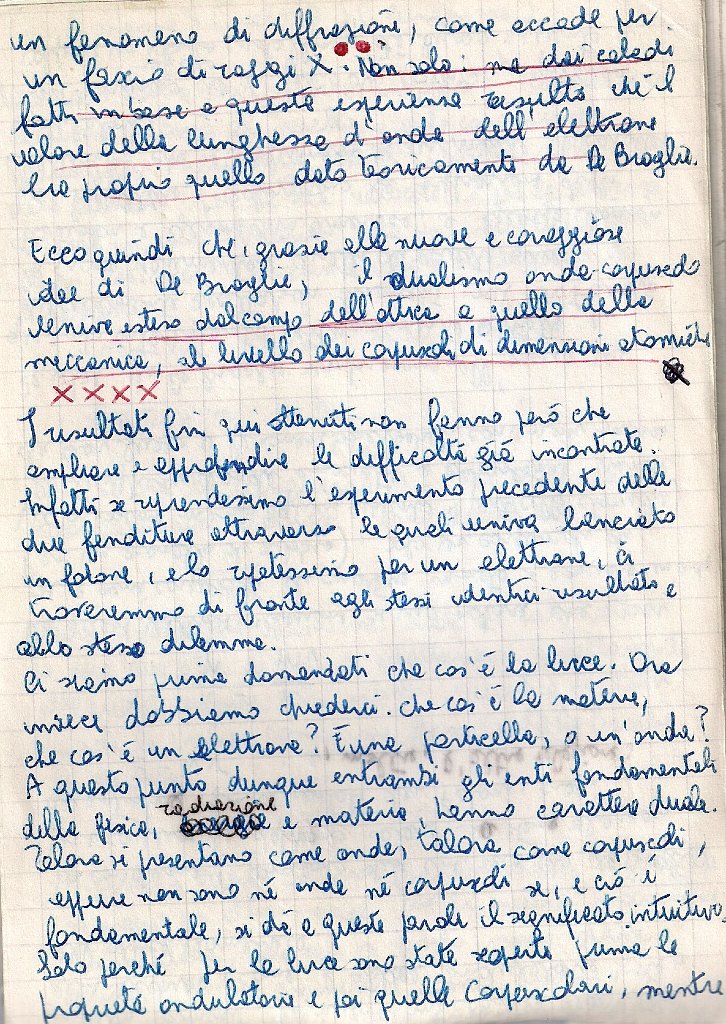 un fenomeno di diffrazione, come accade per
un fascio di raggi X. Non solo: ma dai calcoli
fatti in base a questa esperienza risultò che il
valore della lunghezza d'onda dell'elettrone
era proprio quello dato teoricamente da De Broglie.
Ecco quindi che, grazie alle nuove e coraggiose
idee di De Broglie, il dualismo onda-corpuscolo
veniva esteso dal campo dell'ottica a quello della
meccanica, al livello dei corpuscoli di dimensioni atomiche
X X X X
I risultati fin qui ottenuti non fanno però che
ampliare e approfondire le difficoltà già incontrate.
Infatti se riprendessimo l'esperimento precedente delle
due fenditure attraverso le quali veniva lanciato
un fotone, e lo ripetessimo per un elettrone, ci
troveremmo di fronte agli stessi identici risultati e
allo stesso dilemma.
Ci siamo prima domandati che cos'è la luce. Ora
invece dobbiamo chiederci: che cos'è la materia,
che cos'è un elettrone? È una particella, o un'onda?
A questo punto dunque entrambi gli enti fondamentali
radiazione
della fisica, e materia, hanno carattere duale.
Talora si presentano come onde, talora come corpuscoli,
eppure non sono né onde né corpuscoli se, e ciò è
fondamentale, si dà a queste parole il significato intuitivo.
Solo perché per la luce sono state scoperte prima le
proprietà ondulatorie e poi quelle corpuscolari, mentre